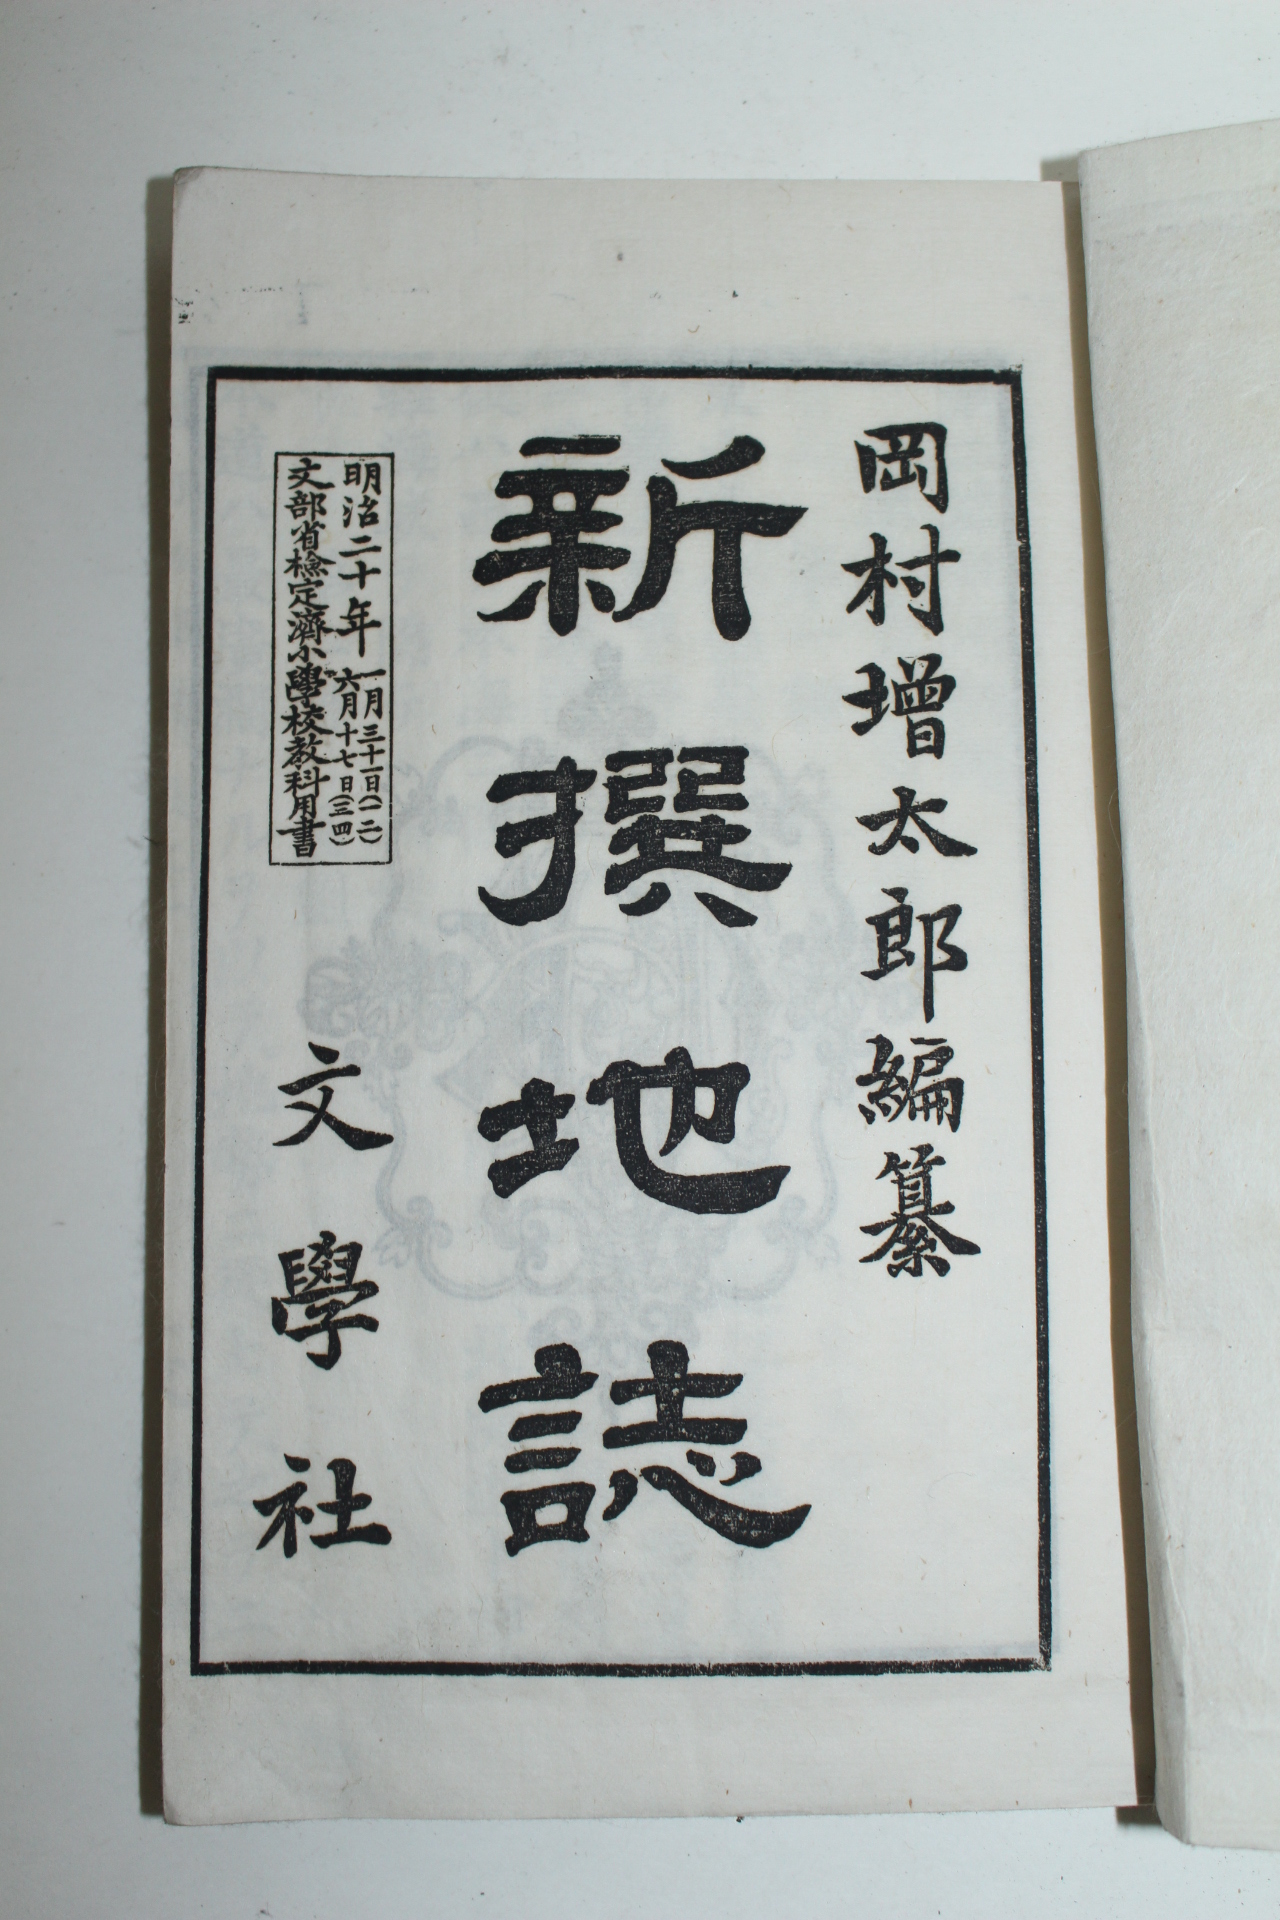 岡村増太郎編纂
新撰地誌
明治二十年一月三十一日(一二)
六月十七日(三四)
文部省檢定濟小學校教科用書
文學社